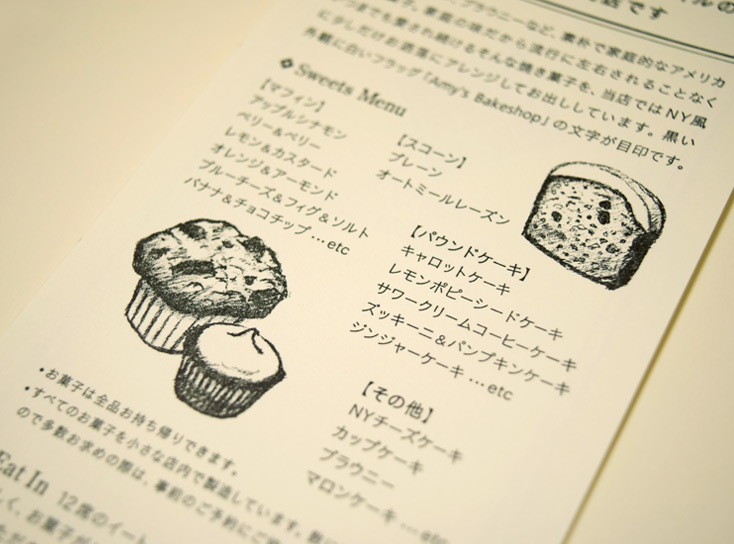 店です
ブラウニーなど、素朴で家庭的なアメリカ
家庭の味だから流行に左右されることなく
いつまでも愛され続けるそんな焼き菓子を、当店ではNY風
に少しだけお洒落にアレンジしてお出ししています。黒い
外観に白いフラッグ「Amy's Bakeshop」の文字が目印です。
❖ Sweets Menu
【マフィン】
アップルシナモン
ベリー&ベリー
レモン&カスタード
オレンジ&アーモンド
ブルーチーズ&フィグ&ソルト
バナナ&チョコチップ …etc
【スコーン】
プレーン
オートミールレーズン
【パウンドケーキ】
キャロットケーキ
レモンポピーシードケーキ
サワークリームコーヒーケーキ
ズッキーニ&パンプキンケーキ
ジンジャーケーキ …etc
【その他】
NYチーズケーキ
カップケーキ
ブラウニー
マロンケーキ …etc
・お菓子は全品お持ち帰りできます。
・すべてのお菓子を小さな店内で製造しています。
ので多数お求めの際は、事前のご予約にご
Eat In 12席のイート
お菓子が